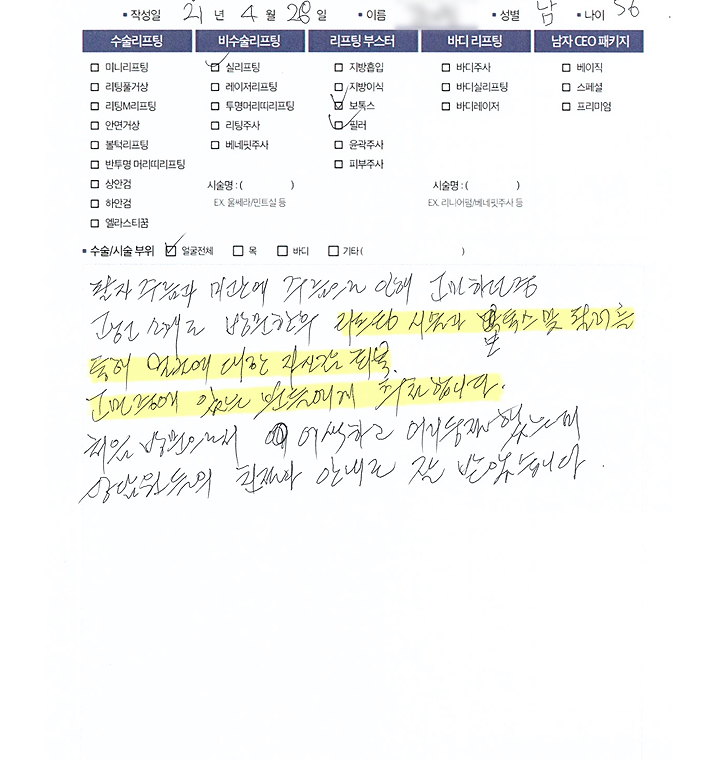 • 작성일 21 년 4 월 28 일 • 이름 • 성별 남 • 나이 56
수술리프팅 비수술리프팅 리프팅 부스터 바디 리프팅 남자 CEO 패키지
미니리프팅 실리프팅 지방흡입 바디주사 베이직
리팅풀거상 레이저리프팅 지방이식 바디실리프팅 스페셜
리팅M리프팅 투명머리띠리프팅 보톡스 바디레이저 프리미엄
안면거상 리팅주사 필러
볼턱리프팅 베네핏주사 윤곽주사
반투명 머리띠리프팅 피부주사
상안검 시술명 : ( ) 시술명 : ( )
하안검 EX. 울쎄라/민트실 등 EX. 리니어펌/베네핏주사 등
엘라스티꿈
• 수술/시술 부위 얼굴전체 목 바디 기타 ( )
팔자 주름과 미간에 주름으로 인해 고민하던중
소개로 방문한후 리프팅 시술과 보톡스 및 필러를
통해 얼굴에 대한 자신감 회복.
고민중에 있는 분들에게 추천합니다.
처음 방문으로서 어색하고 어리둥절 했으며
상담원들의 친절한 안내로 잘 받았습니다.